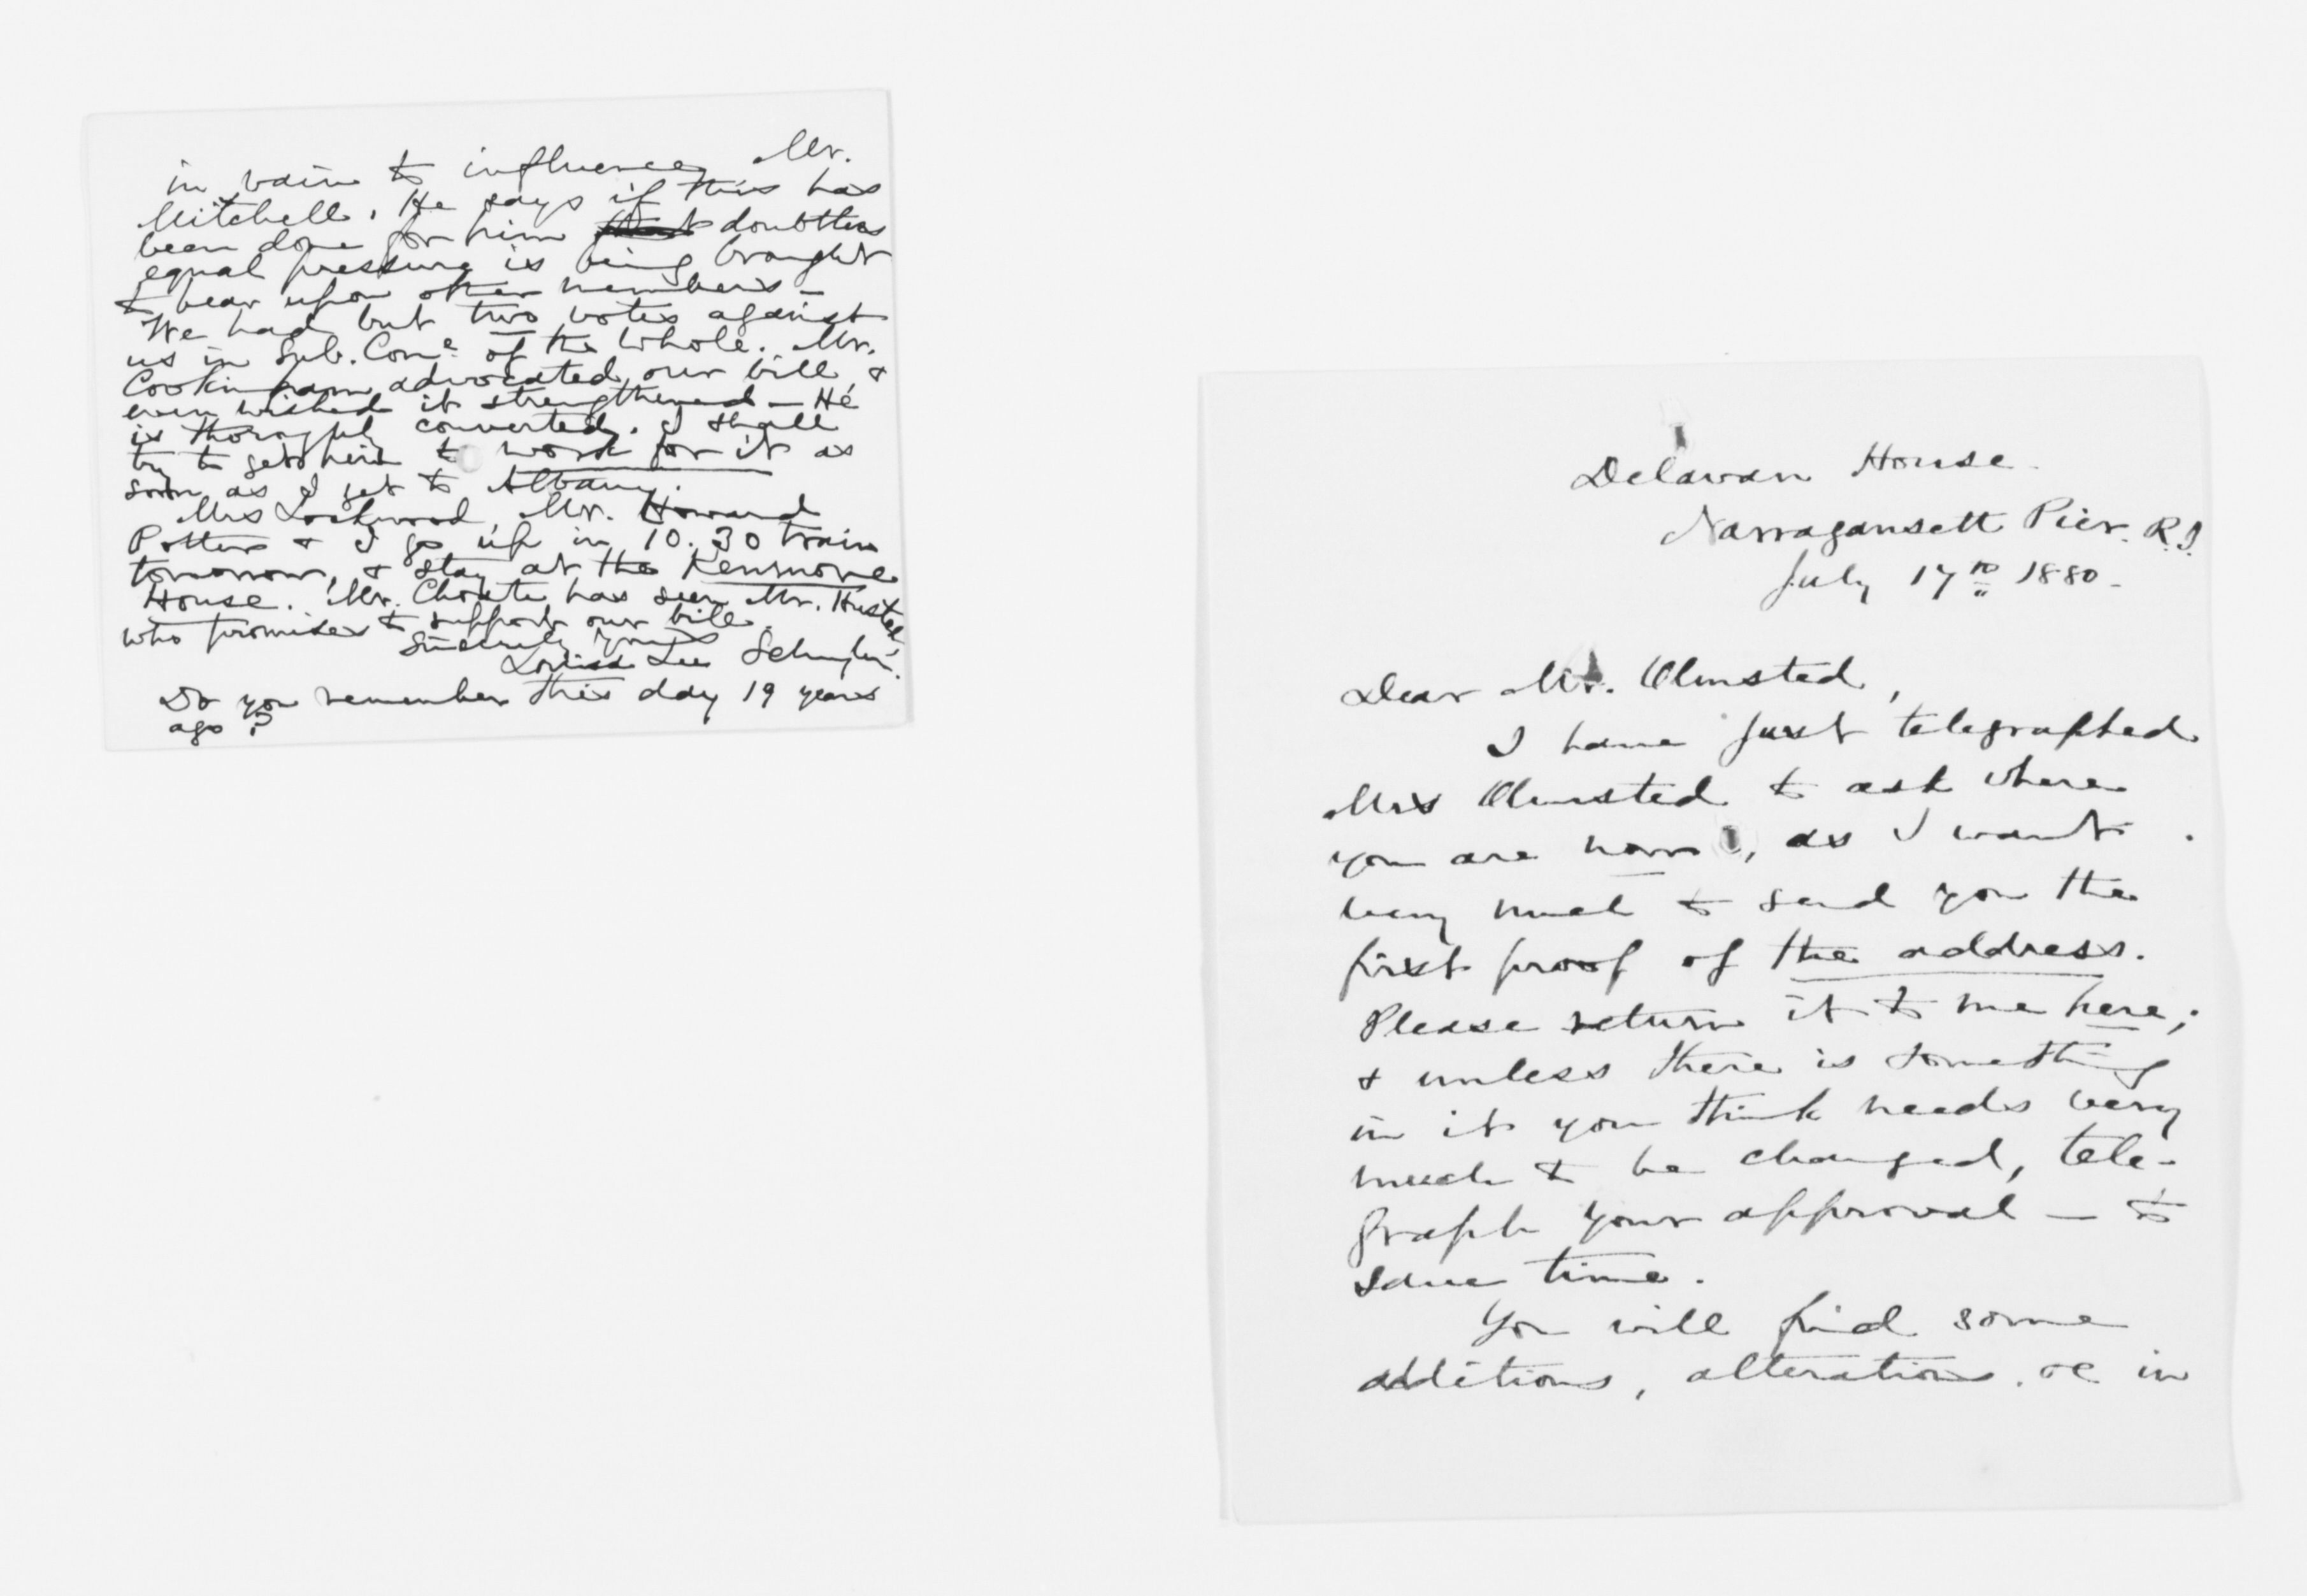 in vain to influence Mr.
Mitchell. He says if this has
been done for him doubtless
equal pressure is being brought
to bear upon other members –
We had but two votes against
us in Sub. Come. of the Whole. Mr.
Cookinham advocated our bill, &
even wished it strengthened – He
is thoroughly converted. I shall
try to get him to work for it as
soon as I get to Albany.
Mrs Lockwood, Mr. Howard
Potter & I go up in 10.30 train
tomorrow, & stay at the Kenmore
House. Mr. Choate has seen Mr. Husted
who promises to support our bill.
Sincerely yours
Louisa Lee Schuyler.
Do you remember this day 19 years
ago?
Delavan House.
Narragansett Pier. R.I.
July 17th 1880.
Dear Mr. Olmsted,
I have just telegraphed
Mrs Olmsted to ask where
you are now, as I want
very much to send you the
first proof of the address.
Please return it to me here;
& unless there is something
in it you think needs very
much to be changed, tele-
graph your approval – to
save time.
You will find some
additions, alterations, &c in